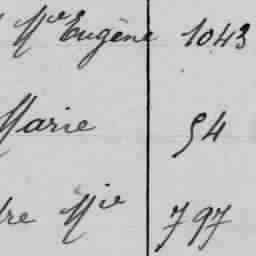 Mie Eugène 1043
Marie 54
re Mie 797